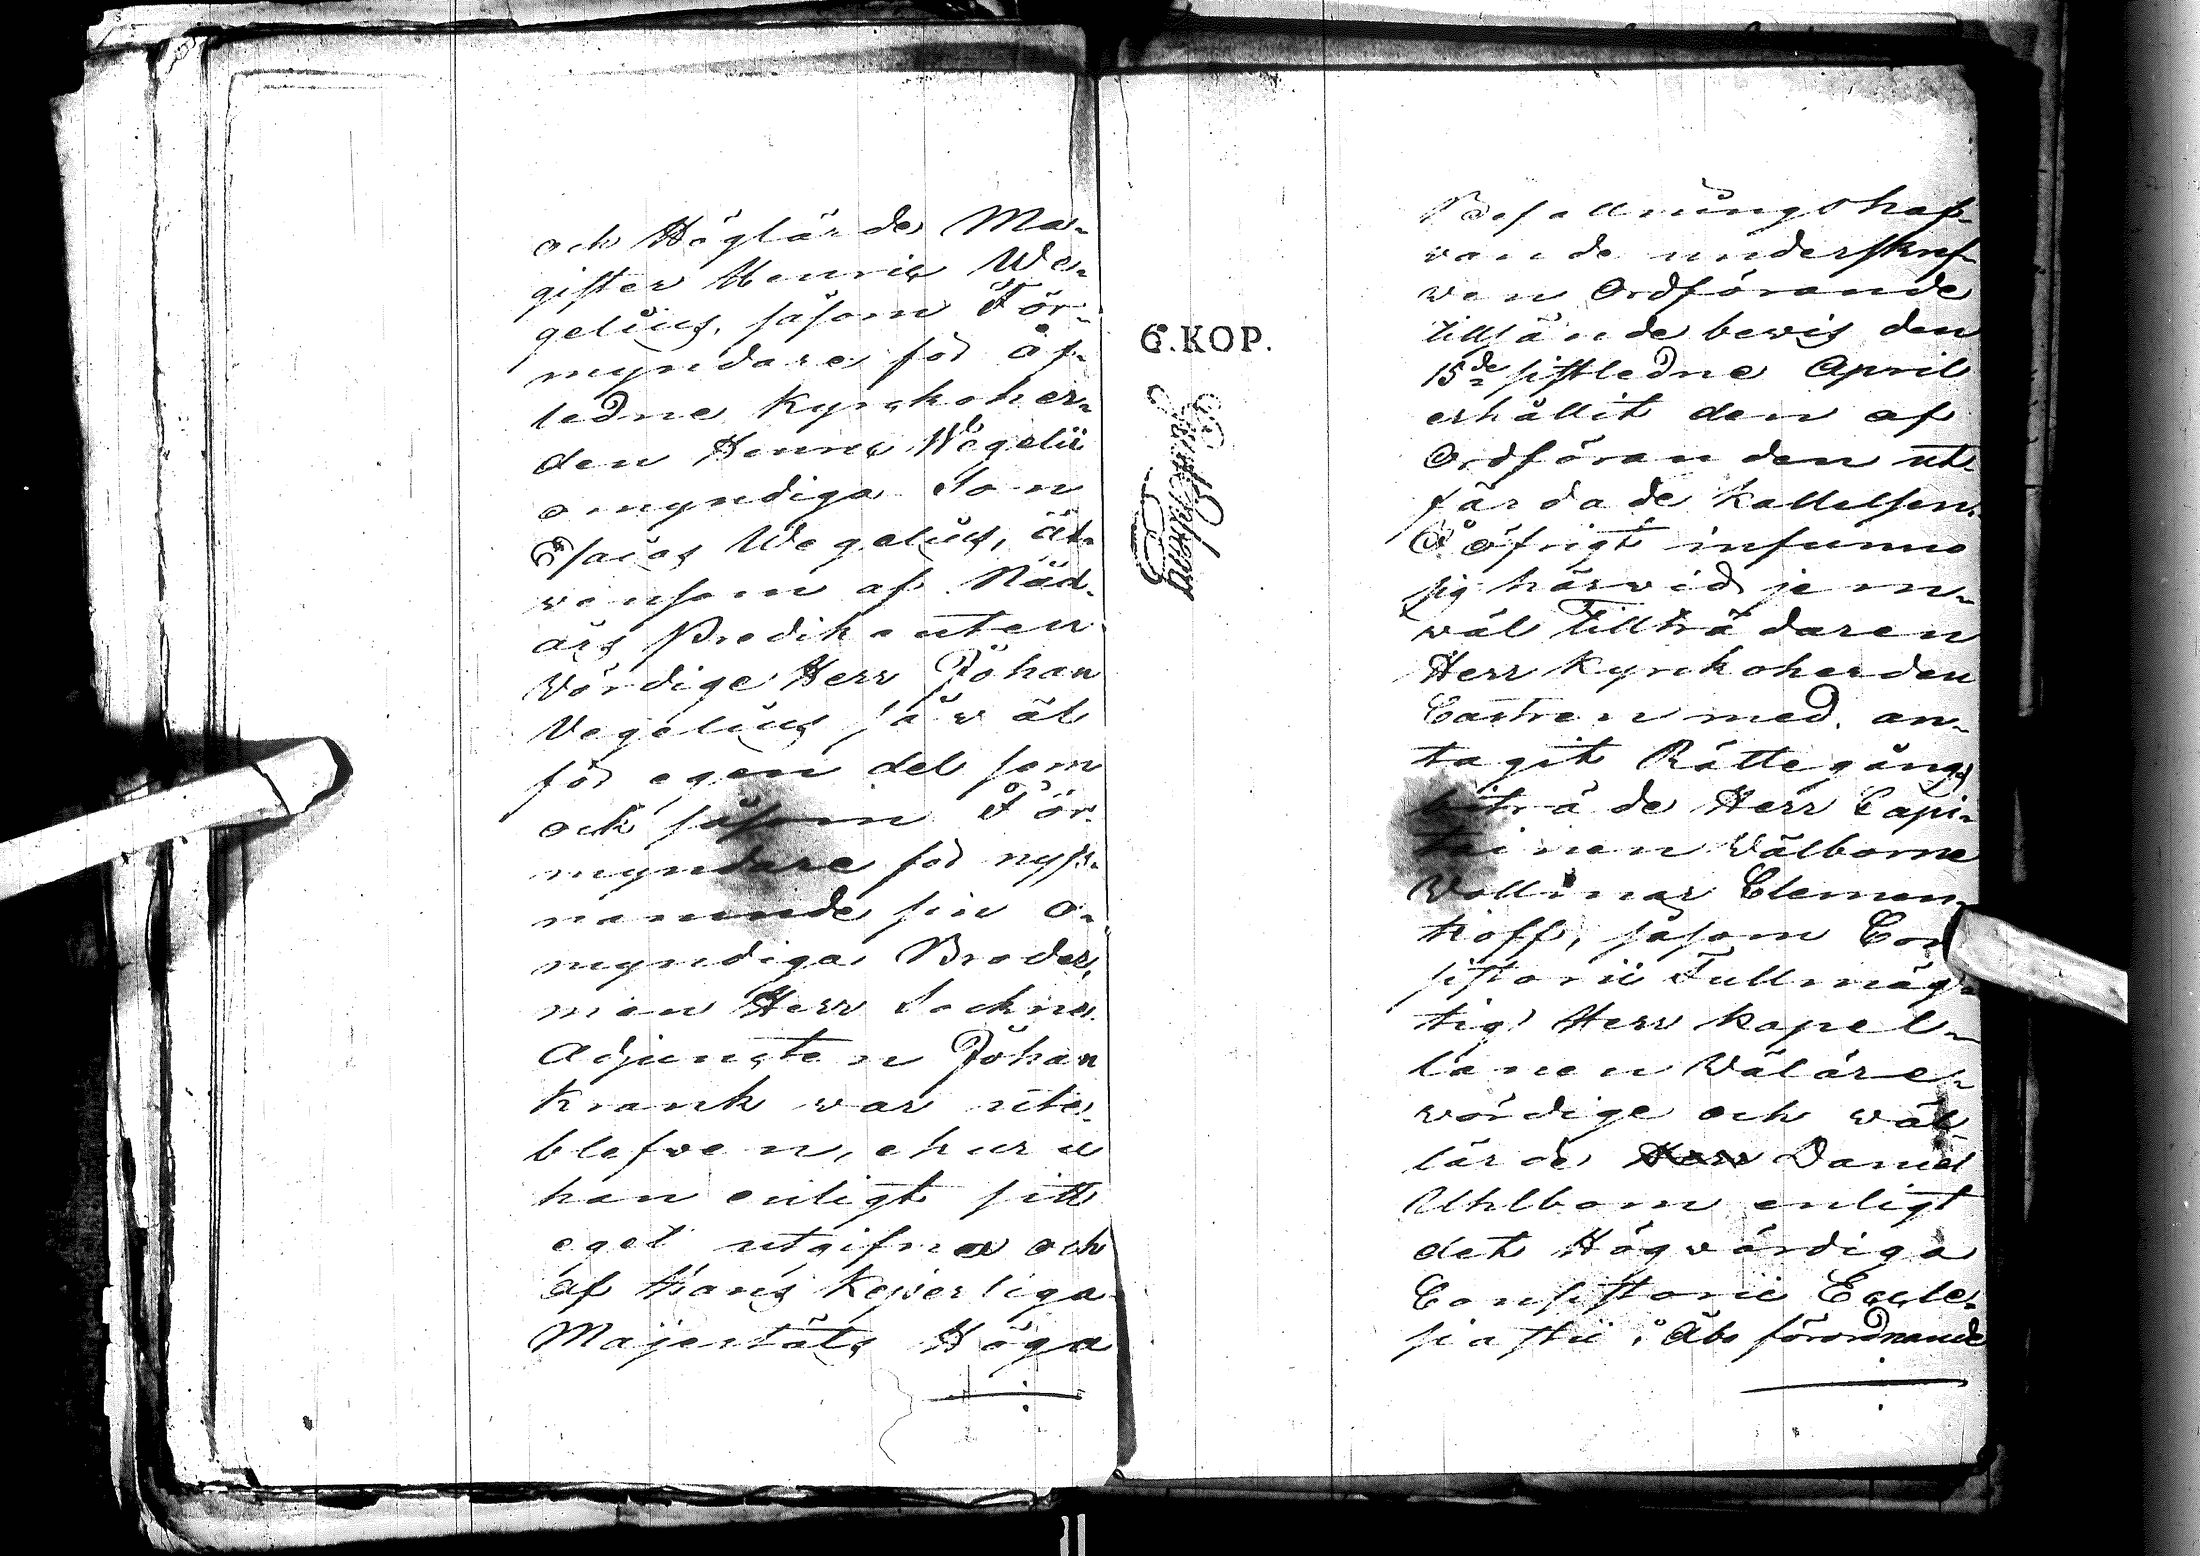 och Höglärde Ma-
gister Henric We-
gelius, såsom För-
myndare för af-
ledne Kyrckoher-
den Henric Wegelii
omyndiga Son
Esaias Wegelius, äf-
wensom af Nåd-
års Predikanten
Wördige Herr Johan
Vegelius så wäl
för egen del som
ock såsom För-
myndare för nyss-
namnde sin o-
myndiga Broder,
men Herr Sockne
Adjuncten Johan
Krank war ute-
blefwen, ehuru
han enligt sitt
eget utgifna och
af Hans Kejserliga
Majestäts Höga
6.KOP.
Befallningshaf-
vande underskref-
wen Ordförande
tillsände bewis den
15de sistledne April
erhållit den af
Ordföranden ut-
färdade kallelsen.
I öfrigt infunno
sig härwid jem-
wäl Tillträdaren
Herr Kyrckoherden
Castren med an-
tagit Rättegångs
biträde Herr Capi-
tainen Wälborne
Wollmar Clemen-
hoff, såsom Con
sistorii Fullmäg-
tig Herr Kapel-
lanen Wäläre-
wördige och wäl-
lärde Herr Daniel
Uhlbom enligt
det Högwördiga
Consistorii Eccle-
siastii i Åbo förordnande